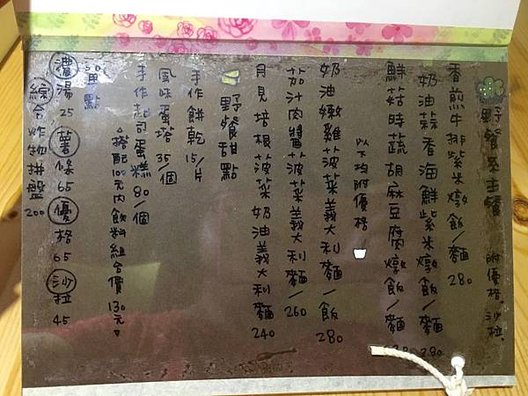 野餐菜主餐 附優格、沙拉
香煎牛排紫米燉飯/麵 280
奶油蒜香海鮮紫米燉飯/麵 280
鮮菇時蔬胡麻豆腐燉飯/麵
以下均附優格
奶油嫩雞菠菜義大利麵/飯 280
茄汁肉醬菠菜義大利麵/260
月見培根菠菜奶油義大利麵 240
野餐甜點
手作餅乾 15/片
風味蛋塔 35/個
手作起司蛋糕 80/個
搭配100元內飲料組合價130元
單點
濃湯 25 薯條 65 優格 65 沙拉 45
綜合炸物拼盤 200